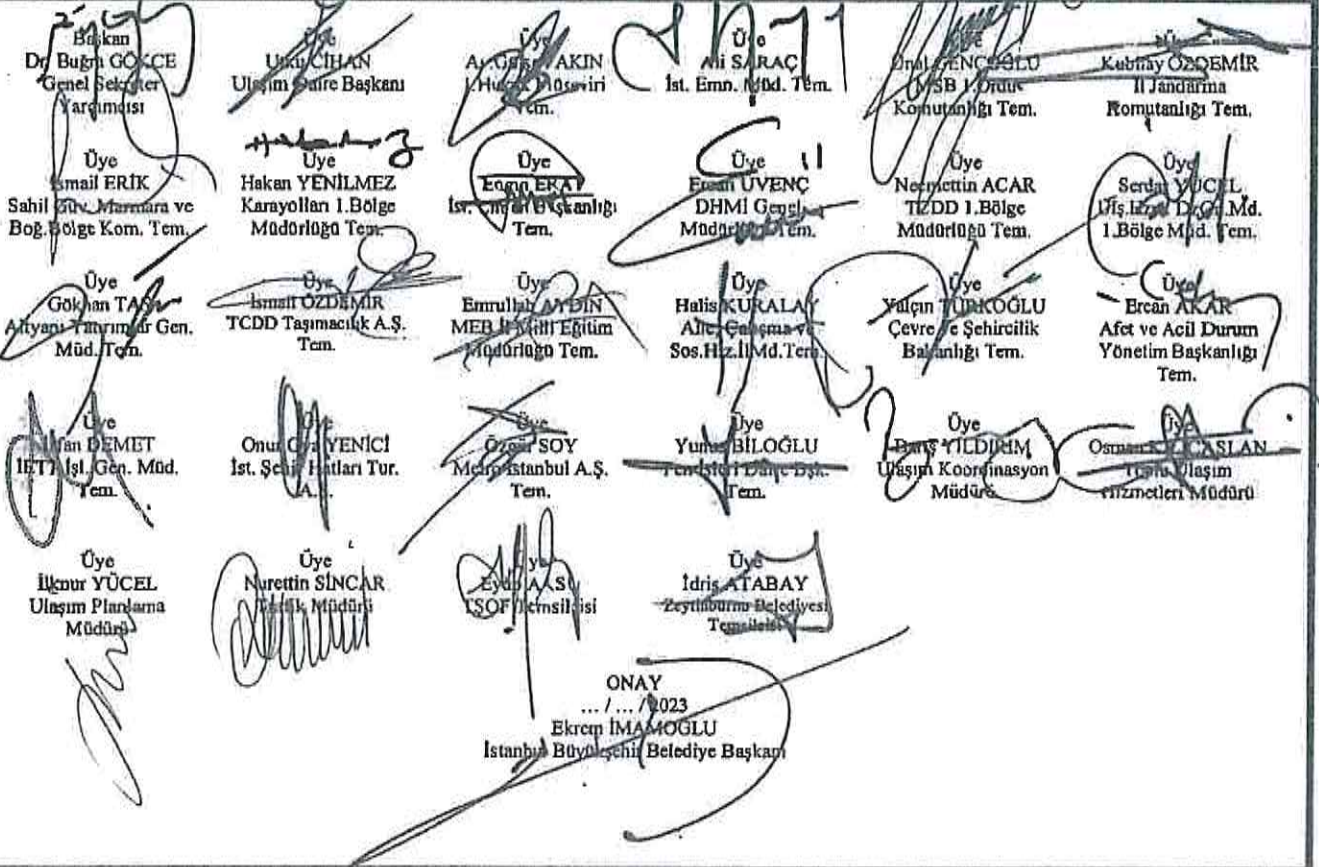 Başkan
Dr. Buğra GÖKCE
Genel Sekreter
Yardımcısı
Üye
Utku CİHAN
Ulaşım Daire Başkanı
Üye
AKIN
Tem.
Üye
Ali SARAÇ
İst. Emn. Müd. Tem.
GENÇOĞLU
MSB 1.Ordu
Komutanlığı Tem.
Kubilay ÖZDEMİR
İl Jandarma
Komutanlığı Tem.
Üye
İsmail ERİK
Sahil Güv. Marmara ve
Boğ. Bölge Kom. Tem.
Üye
Hakan YENİLMEZ
Karayolları 1.Bölge
Müdürlüğü Tem.
Üye
Tem.
Üye
DHMİ Genel
Müdürlüğü Tem.
Üye
Necmettin ACAR
TCDD 1.Bölge
Müdürlüğü Tem.
Üye
Serdar YÜCEL
1.Bölge Müd. Tem.
Üye
Gökhan
Altyapı Yatırımlar Gen.
Müd. Tem.
Üye
İsmail ÖZDEMİR
TCDD Taşımacılık A.Ş.
Tem.
Üye
Emrullah AYDIN
MEB İl Milli Eğitim
Müdürlüğü Tem.
Üye
Halis KURALAY
Aile Çalışma ve
Sos.Hiz.İl Md.Tem.
Üye
Yalçın TÜRKOĞLU
Çevre ve Şehircilik
Bakanlığı Tem.
Üye
Ercan AKAR
Afet ve Acil Durum
Yönetim Başkanlığı
Tem.
Üye
DEMET
İETT İşl. Gen. Müd.
Tem.
Üye
YENİCİ
İst. Şehir Hatları Tur.
A.Ş.
Üye
SOY
Metro İstanbul A.Ş.
Tem.
Üye
Yunus BİLOĞLU
Tem.
Üye
Barış YILDIRIM
Ulaşım Koordinasyon
Müdürü
Üye
Toplu Ulaşım
Hizmetleri Müdürü
Üye
İlknur YÜCEL
Ulaşım Planlama
Müdürü
Üye
Nurettin SİNCAR
Trafik Müdürü
Üye
TŞOF Temsilcisi
Üye
İdris ATABAY
Zeytinburnu Belediyesi
Temsilcisi
ONAY
... / ... / 2023
Ekrem İMAMOĞLU
İstanbul Büyükşehir Belediye Başkanı